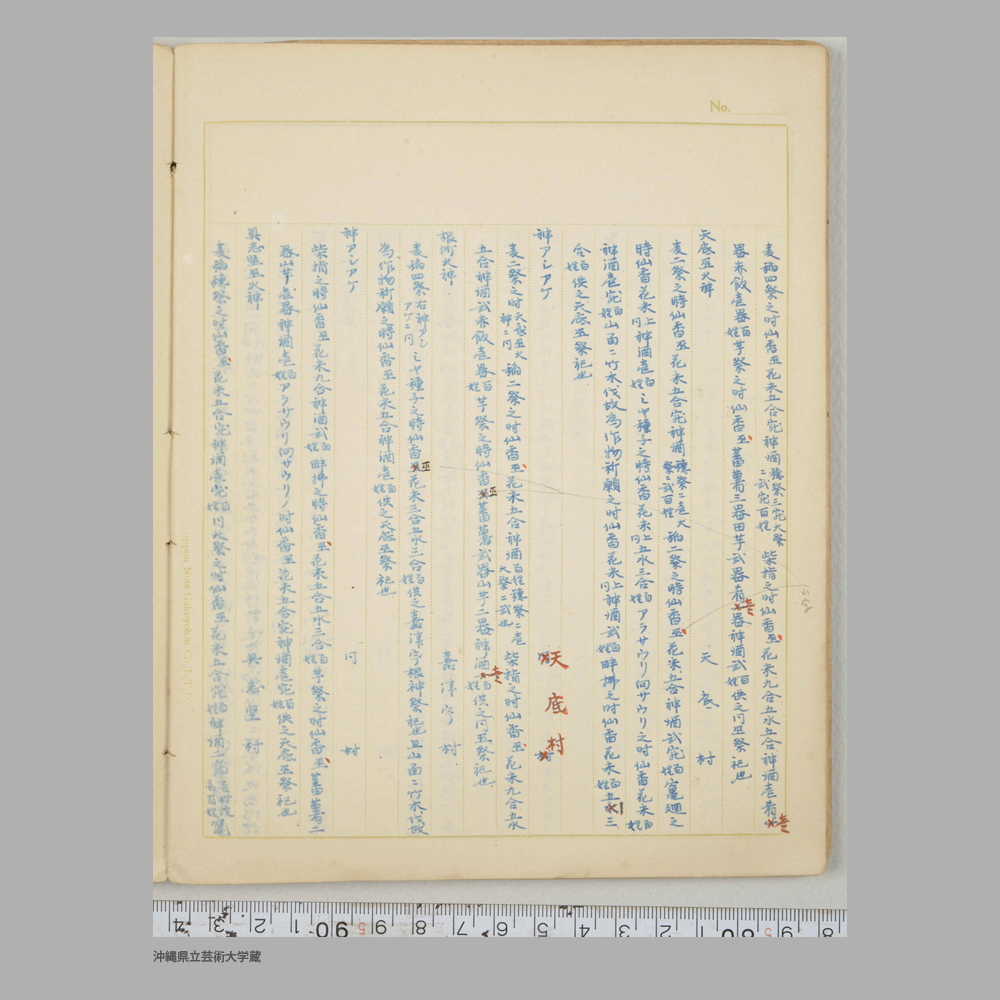 No.
麦稲四祭之時仙香巫花米五合宛神酒穂祭三宛大祭ニ弐宛百姓柴指之時仙香巫花米九合五水五合神酒壱
器赤飯壱器百姓芋祭之時仙香巫蕃薯三器田芋弐器肴壱器神酒弐百姓供之同巫祭祀也
天底巫火神 天底村
麦二祭之時仙香巫花米五合宛神酒穂祭ニ壱大祭ニ弐百姓稲二祭之時仙香巫花米五合神酒弐宛百姓竈廻之
時仙香花米上同神酒壱宛百姓ミヤ種子之時仙香花米上同五水三合百姓アラサウリ同サウリ之時仙香花米百姓
神酒壱宛百姓山留ニ竹木伐故為作物祈願之時仙香花米上同神酒弐百姓畔払之時仙香花米百姓五水三
合百姓供之天底巫祭祀也
神アシアゲ 天底村
麦二祭之時天底巫火神ニ同稲二祭之時仙香巫花米五合神酒百姓穂祭ニ壱大祭ニ弐也柴指之時仙香巫花米九合五水
五合神酒弐赤飯壱器百姓芋祭之時仙香巫蕃薯弐器山芋二器神酒壱百姓供之同巫祭祀也
根所火神 嘉津宇村
麦稲四祭右神アシアゲニ同ミヤ種子之時仙香巫花米三合五水三合百姓供之嘉津宇根神祭祀也且山留ニ竹木伐故
為作物祈願之時仙香巫花米五合神酒壱百姓供之天底巫祭祀也
神アシアゲ 同村
柴指之時仙香巫花米九合神酒弐百姓畔払之時仙香巫花米五合五水三合百姓芋祭之時仙香巫蕃薯二
器山芋壱器神酒壱百姓アラサウリ同サウリノ時仙香巫花米五合宛神酒壱宛百姓供之天底巫祭祀也
具志堅巫火神 具志堅村
麦稲穂祭之時仙香巫花米五合宛神酒壱宛百姓同大祭之時仙香巫花米五合宛百姓神酒
沖縄県立芸術大学蔵